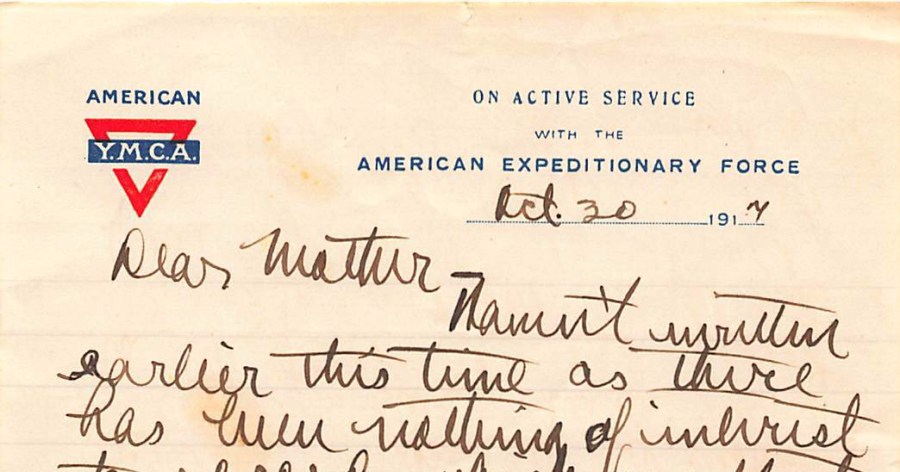 AMERICAN
Y.M.C.A.
ON ACTIVE SERVICE
WITH THE
AMERICAN EXPEDITIONARY FORCE
Oct. 30 1917
Dear Mother
Haven't written
earlier this time as there
has been nothing of interest
to